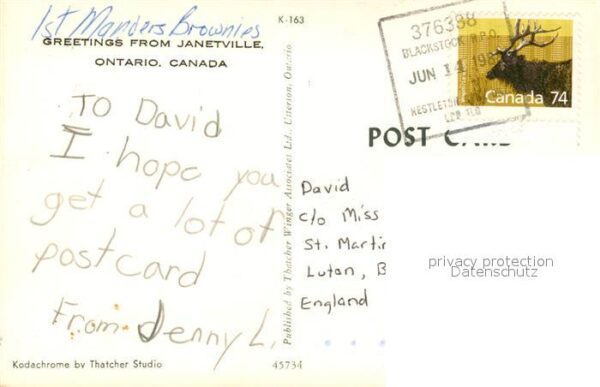 1st Manders Brownies
K-163
GREETINGS FROM JANETVILLE,
ONTARIO, CANADA
To David
I hope you
get a lot of
postcard
From Jenny L.
Kodachrome by Thatcher Studio
45734
Published by Thatcher Winger Associates Ltd., Utterson, Ontario
376388
BLACKSTOCK R.P.O.
JUN 14 198
NESTLETON
L0B 1L0
Canada 74
POST CARD
David
c/o Miss
St. Martin
Luton, B
England
privacy protection
Datenschutz